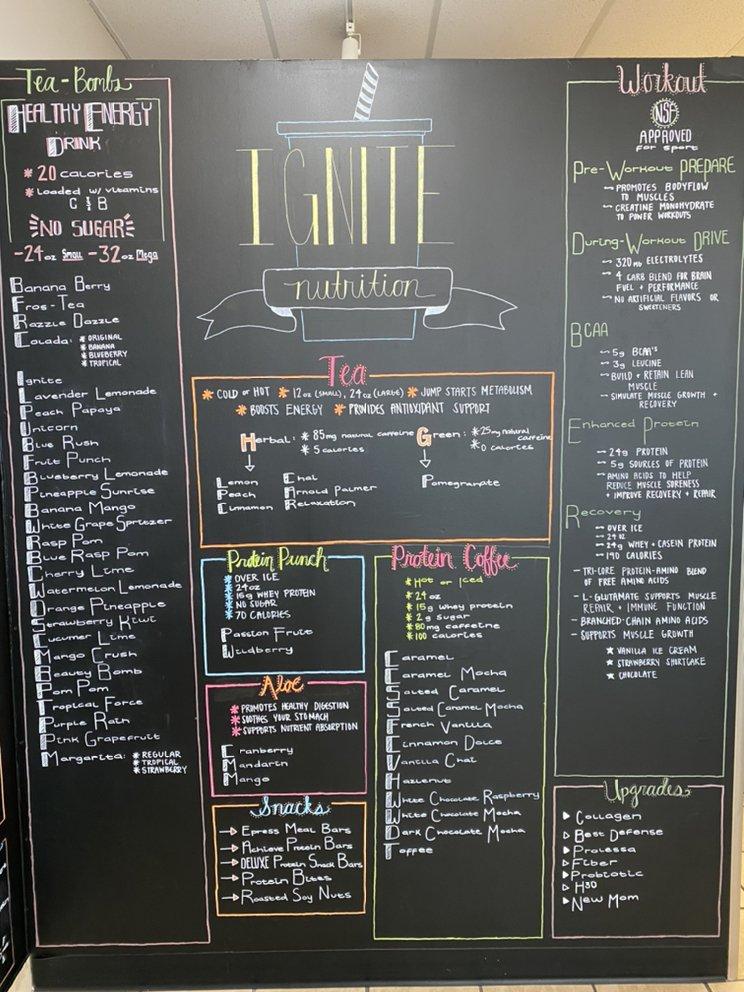 Tea-Bombs
HEALTHY ENERGY
DRINK
* 20 calories
* Loaded w/ vitamins
C & B
NO SUGAR
-24oz Small -32oz Mega
Banana Berry
Fros-Tea
Razzle Dazzle
Colada: * ORIGINAL
* BANANA
* BLUEBERRY
* TROPICAL
Ignite
Lavender Lemonade
Peach Papaya
Unicorn
Blue Rush
Fruit Punch
Blueberry Lemonade
Pineapple Sunrise
Banana Mango
White Grape Spritzer
Rasp Pom
Blue Rasp Pom
Cherry Lime
Watermelon Lemonade
Orange Pineapple
Strawberry Kiwi
Cucumer Lime
Mango Crush
Beauty Bomb
Pom Pom
Tropical Force
Purple Rain
Pink Grapefruit
Margarita: * REGULAR
* TROPICAL
* STRAWBERRY
IGNITE
nutrition
Tea
* COLD or HOT * 12oz (SMALL), 24oz (LARGE) * JUMP STARTS METABOLISM
* BOOSTS ENERGY * PROVIDES ANTIOXIDANT SUPPORT
Herbal: * 85mg natural caffeine
* 5 calories
Lemon
Peach
Cinnamon
Chai
Arnold Palmer
Relaxation
Green: * 25mg natural caffeine
* 0 calories
Pomegranate
Protein Punch
* OVER ICE
* 24oz
* 15g WHEY PROTEIN
* NO SUGAR
* 70 CALORIES
Passion Fruit
Wildberry
Aloe
* PROMOTES HEALTHY DIGESTION
* SOOTHES YOUR STOMACH
* SUPPORTS NUTRIENT ABSORPTION
Cranberry
Mandarin
Mango
Snacks
→ Epress Meal Bars
→ Achieve Protein Bars
→ DELUXE Protein Snack Bars
→ Protein Bites
→ Roasted Soy Nuts
Protein Coffee
* Hot or Iced
* 24oz
* 15g whey protein
* 2g sugar
* 80mg caffeine
* 100 calories
Caramel
Caramel Mocha
Salted Caramel
Salted Caramel Mocha
French Vanilla
Cinnamon Dolce
Vanilla Chai
Hazelnut
White Chocolate Raspberry
White Chocolate Mocha
Dark Chocolate Mocha
Toffee
Workout
NSF
APPROVED
for sport
Pre-Workout PREPARE
- PROMOTES BODYFLOW
TO MUSCLES
- CREATINE MONOHYDRATE
TO POWER WORKOUTS
During-Workout DRIVE
- 320mg ELECTROLYTES
- 4 CARB BLEND FOR BRAIN
FUEL + PERFORMANCE
- NO ARTIFICIAL FLAVORS OR
SWEETENERS
BCAA
- 5g BCAA'S
- 3g LEUCINE
- BUILD + RETAIN LEAN
MUSCLE
- SIMULATE MUSCLE GROWTH +
RECOVERY
Enhanced Protein
- 24g PROTEIN
- 5g SOURCES OF PROTEIN
- AMINO ACIDS TO HELP
REDUCE MUSCLE SORENESS
+ IMPROVE RECOVERY + REPAIR
Recovery
- OVER ICE
- 24oz
- 24g WHEY + CASEIN PROTEIN
- 190 CALORIES
- TRI-CORE PROTEIN-AMINO BLEND
OF FREE AMINO ACIDS
- L-GLUTAMATE SUPPORTS MUSCLE
REPAIR + IMMUNE FUNCTION
- BRANCHED-CHAIN AMINO ACIDS
- SUPPORTS MUSCLE GROWTH
★ VANILLA ICE CREAM
★ STRAWBERRY SHORTCAKE
★ CHOCOLATE
Upgrades
Collagen
Best Defense
Prolessa
Fiber
Probiotic
H30
New Mom